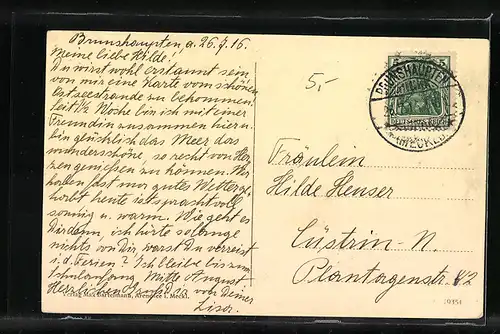 Brunshaupten, a. 26.7.16.
Meine liebe Hilde!
Du wirst wohl erstaunt sein,
von mir eine Karte vom schönen
Ostseestrande zu bekommen.
Seit ½ Woche bin ich mit einer
Freundin zusammen hier u.
bin glücklich das Meer das
wunderschöne, so recht von Her-
zen genießen zu können. Wir
haben fast nur gutes Wetter ge-
habt heute ist's prachtvoll
sonnig u. warm. Wie geht es
Dir denn, ich hörte so lange
nichts von Dir, warst Du verreist
i. d. Ferien? Ich bleibe bis zum
Schulanfang Mitte August
Herzlichen Gruß Dir von Deiner
Lisa.
5,-
BRUNSHAUPTEN
(MECKLB)
5 5
Fräulein
Hilde Heuser
Cüstrin-N.
Plantagenstr.
Verlag Max Bartelmann, Arendsee i. Meckl.